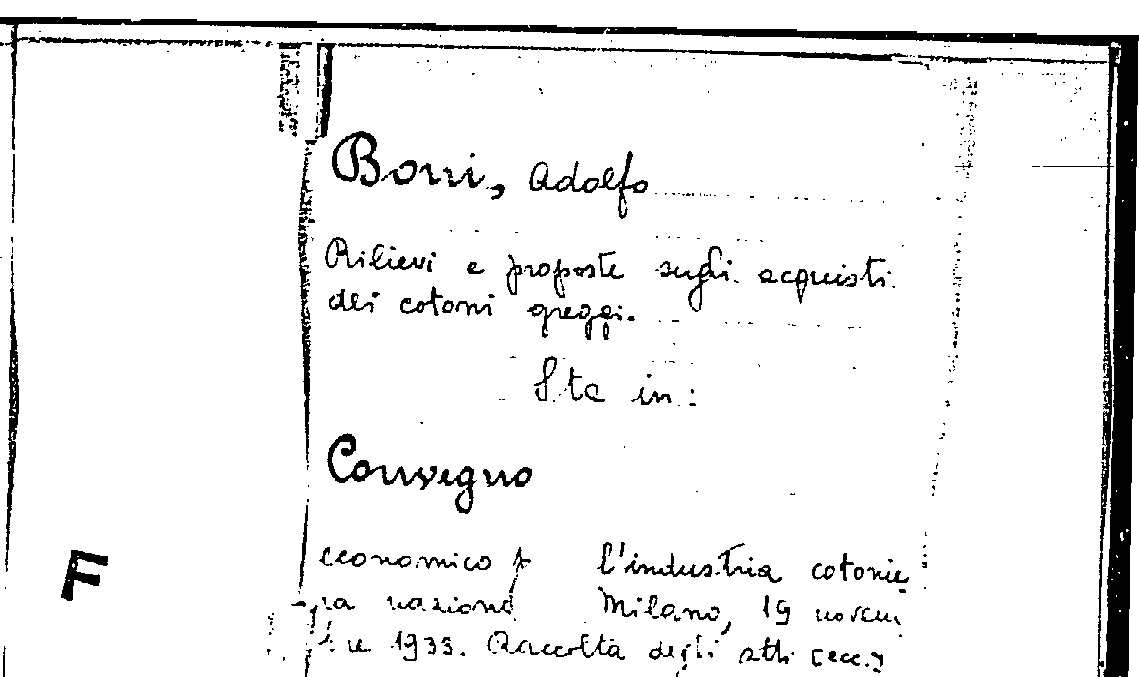 Boni, Adolfo
Rilievi e proposte sugli acquisti
dei cotoni greggi.
Sta in:
Convegno
economico p l'industria cotonie
ra naziona Milano, 19 novem
F
re 1933. Raccolta degli atti [ecc.]